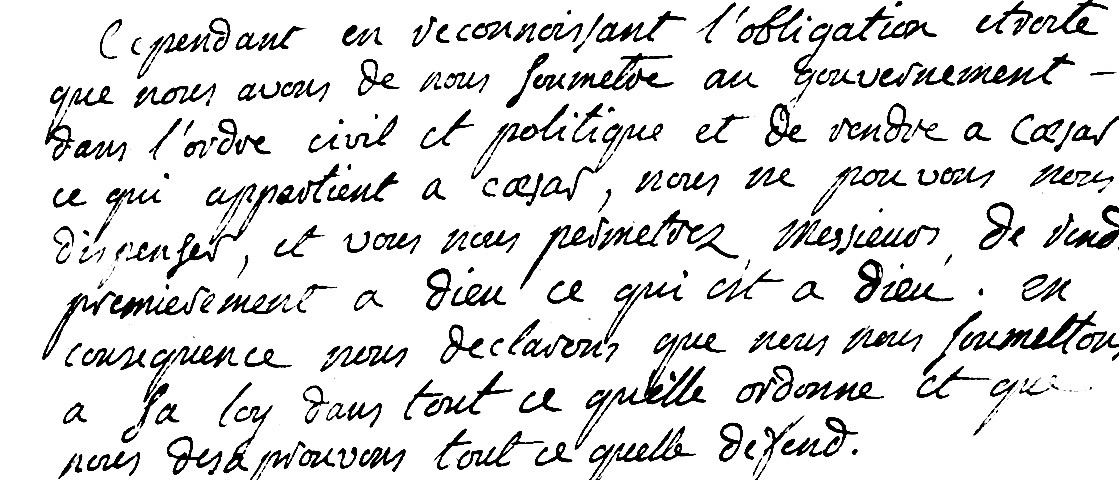 Cependant en reconnoissant l'obligation etroite
que nous avons de nous soumetre au gouvernement -
dans l'ordre civil et politique et de rendre a Cæsar
ce qui appartient a cæsar, nous ne pouvons nous
dispenser, et vous nous permetrez Messieurs, de rend
premierement a dieu ce qui est a dieu. en
consequence nous declarons que nous nous soumettons
a sa loy dans tout ce qu'elle ordonne et que
nous desaprouvons tout ce quelle defend.